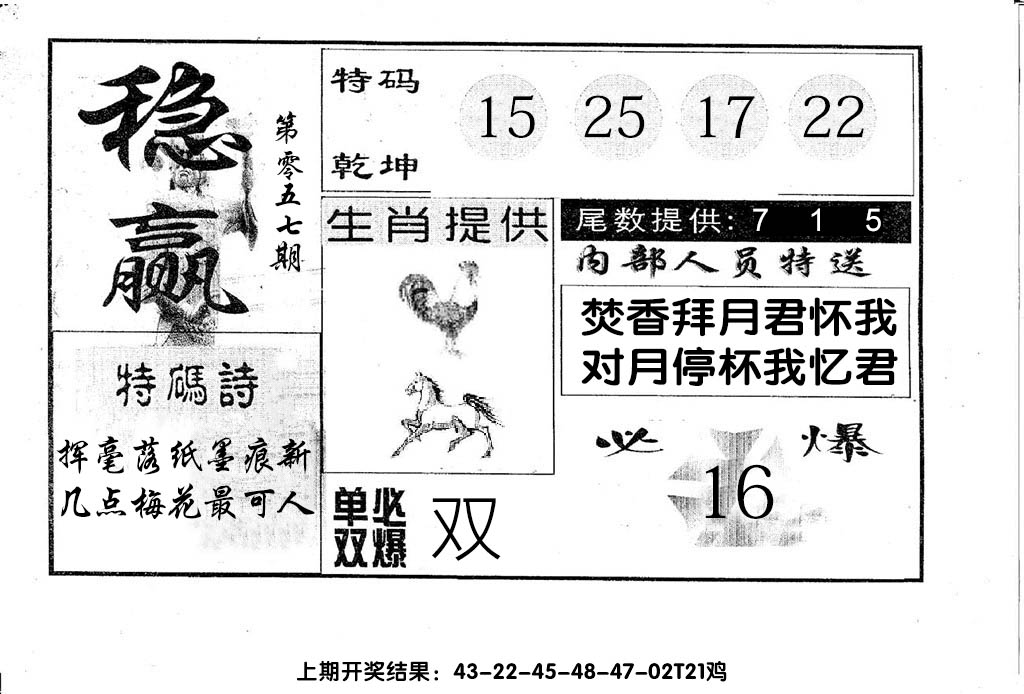 稳赢
第零五七期
特码
乾坤
15 25 17 22
生肖提供
尾数提供: 7 1 5
内部人员特送
焚香拜月君怀我
对月停杯我忆君
特碼詩
挥毫落纸墨痕新
几点梅花最可人
单双必爆
双
必爆
16
上期开奖结果：43-22-45-48-47-02T21鸡